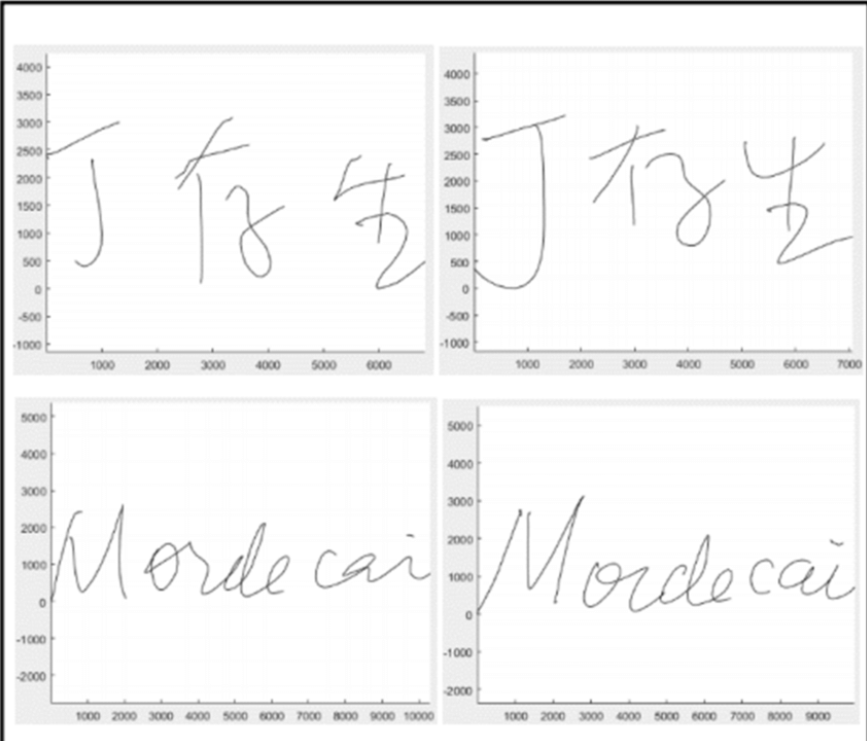 4000
3500
3000
2500
2000
1500
1000
500
0
-500
-1000
丁存生
1000 2000 3000 4000 5000 6000
4000
3500
3000
2500
2000
1500
1000
500
0
-500
-1000
丁存生
1000 2000 3000 4000 5000 6000 7000
5000
4000
3000
2000
1000
0
-1000
-2000
Mordecai
1000 2000 3000 4000 5000 6000 7000 8000 9000 10000
5000
4000
3000
2000
1000
0
-1000
-2000
Mordecai
1000 2000 3000 4000 5000 6000 7000 8000 9000